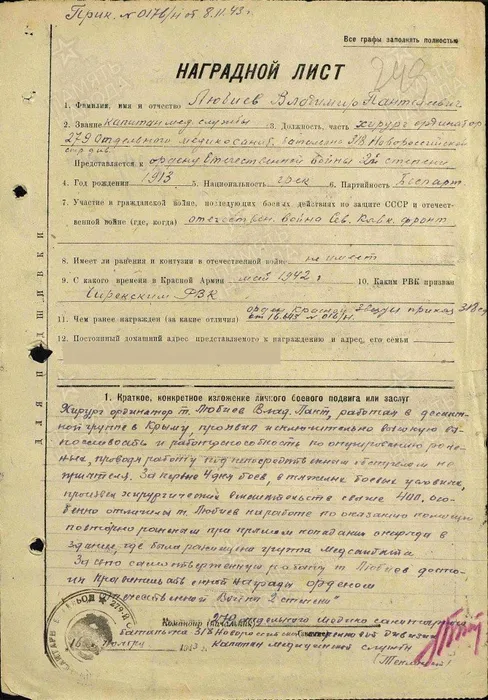 Прик. № 017б/н от 8.11.43 г.
Все графы заполнять полностью
НАГРАДНОЙ ЛИСТ
248
1. Фамилия, имя и отчество Любиев Владимир Пантелеевич
2. Звание капитан мед. службы 3. Должность, часть хирург ординатор
279 Отдельного медикосанит. батальона 318 Новороссийской
стр. див.
Представляется к ордену Отечественной Войны 2й степени
4. Год рождения 1913 5. Национальность грек 6. Партийность Беспарт.
7. Участие в гражданской войне, последующих боевых действиях по защите СССР и отечест-
венной войне (где, когда) отечествен. война Сев. Кавк. фронт
8. Имеет ли ранения и контузии в отечественной войне не имеет
9. С какого времени в Красной Армии май 1942 г 10. Каким РВК призван
РВК
11. Чем ранее награжден (за какие отличия) орден Красной Звезды приказ 318 сд
от № 016/н.
12. Постоянный домашний адрес представляемого к награждению и адрес его семьи
для подшивки
1. Краткое, конкретное изложение личного боевого подвига или заслуг
Хирург ординатор т. Любиев Влад. Пант., работая в десант-
ной группе в Крыму, проявил исключительно большую вы-
носливость и работоспособность по оперированию ране-
ных, проводя работу под непосредственным обстрелом не-
приятеля. За первые 4 дня боев, в тяжелых боевых условиях,
произвел хирургических вмешательств свыше 400, осо-
бенно отличился т. Любиев на работе по оказанию помощи
повторно раненым при прямом попадании снаряда в
здание, где была размещена группа медсанбата.
За эту самоотверженную работу т. Любиев достоин
Правительственной награды орденом
"Отечественной Война 2 степени"
Командир (начальник) 279 Отдельного медико санитарного
батальона 318 Новороссийской дивизии
16 ноября 1943 г. Капитан медицинской службы